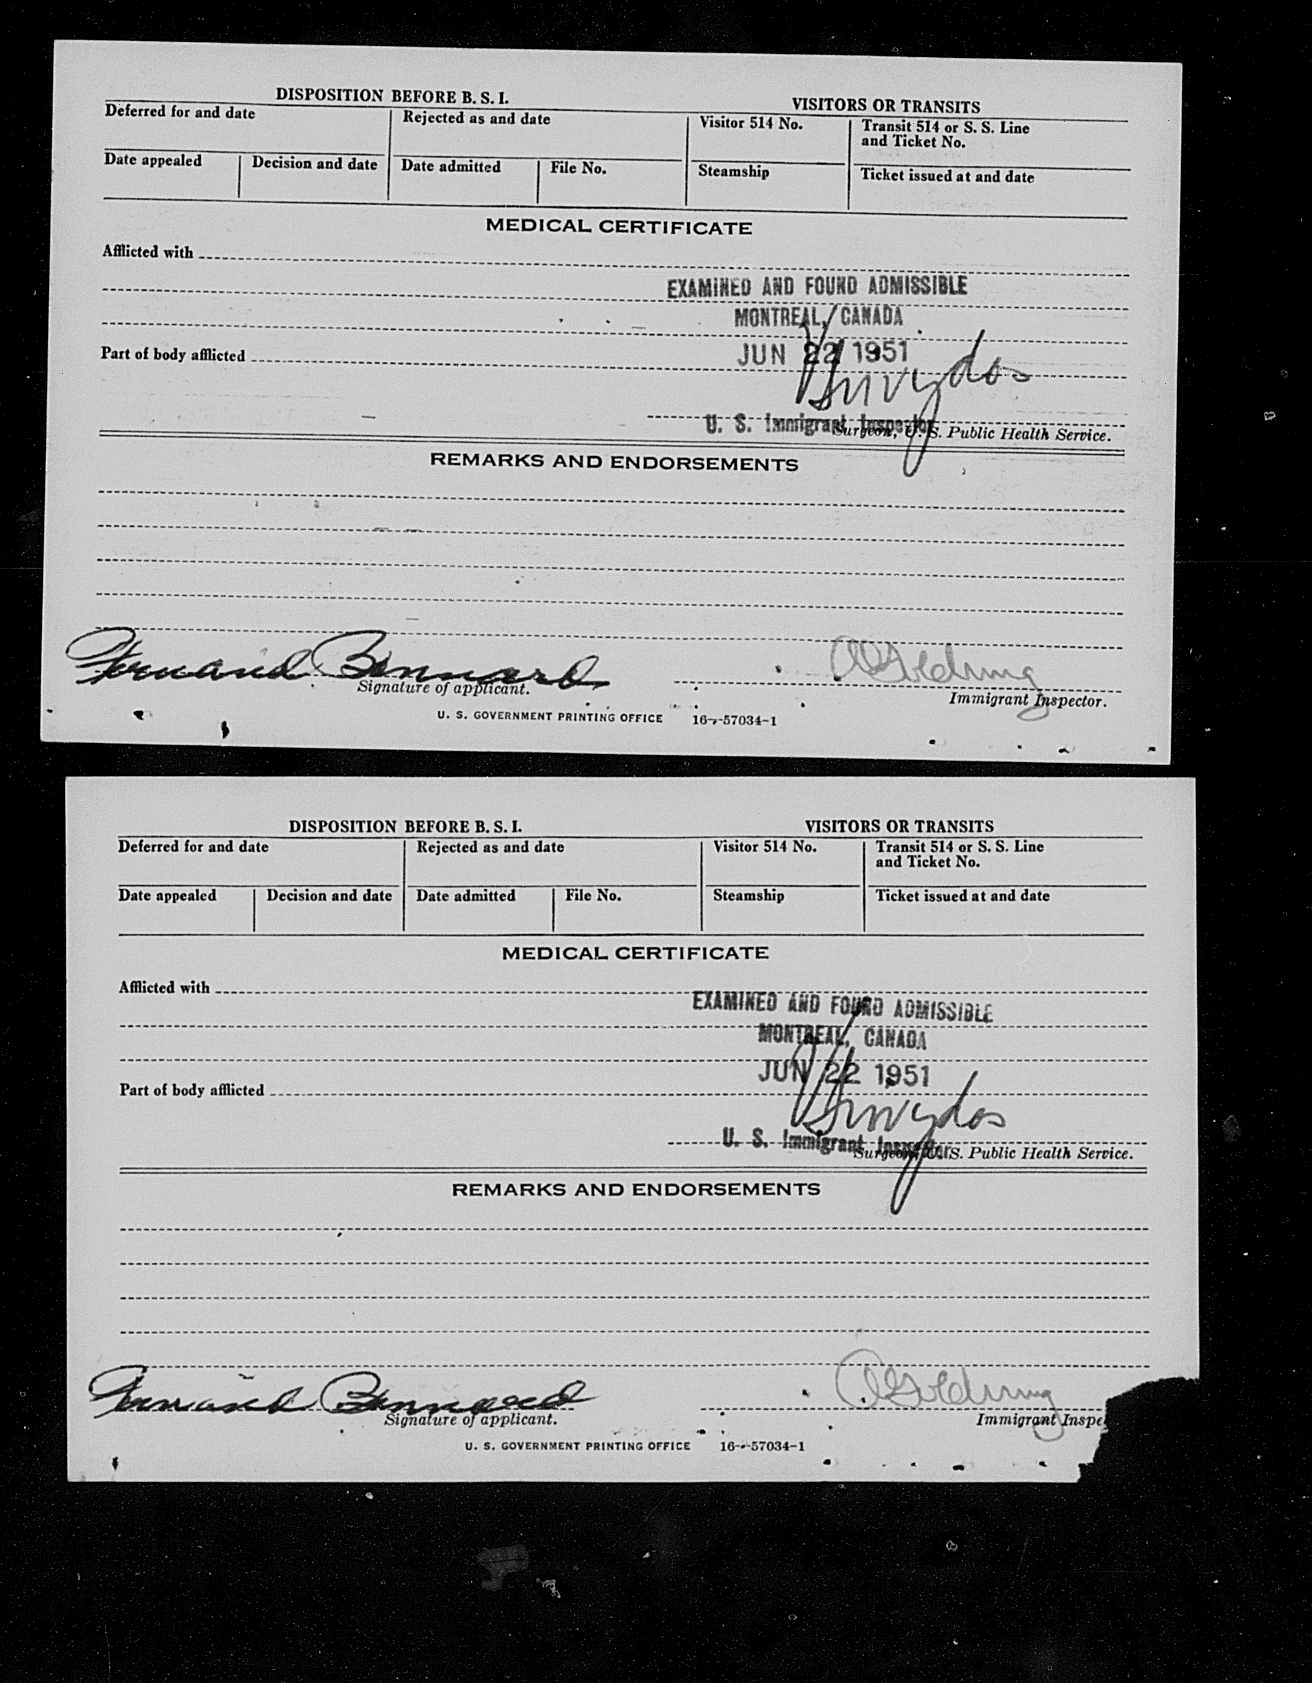 DISPOSITION BEFORE B. S. I. VISITORS OR TRANSITS
Deferred for and date Rejected as and date Visitor 514 No. Transit 514 or S. S. Line
and Ticket No.
Date appealed Decision and date Date admitted File No. Steamship Ticket issued at and date
MEDICAL CERTIFICATE
Afflicted with
EXAMINED AND FOUND ADMISSIBLE
MONTREAL, CANADA
Part of body afflicted JUN 22 1951
U. S. Immigrant Inspector
Surgeon, U. S. Public Health Service.
REMARKS AND ENDORSEMENTS
Fernand Bonnard
Signature of applicant. Immigrant Inspector.
U. S. GOVERNMENT PRINTING OFFICE 16—57034-1
DISPOSITION BEFORE B. S. I. VISITORS OR TRANSITS
Deferred for and date Rejected as and date Visitor 514 No. Transit 514 or S. S. Line
and Ticket No.
Date appealed Decision and date Date admitted File No. Steamship Ticket issued at and date
MEDICAL CERTIFICATE
Afflicted with
EXAMINED AND FOUND ADMISSIBLE
MONTREAL, CANADA
JUN 22 1951
Part of body afflicted
U. S. Immigrant Inspector
Surgeon, U. S. Public Health Service.
REMARKS AND ENDORSEMENTS
Fernand Bonnard
Signature of applicant. Immigrant Inspe
U. S. GOVERNMENT PRINTING OFFICE 16—57034-1